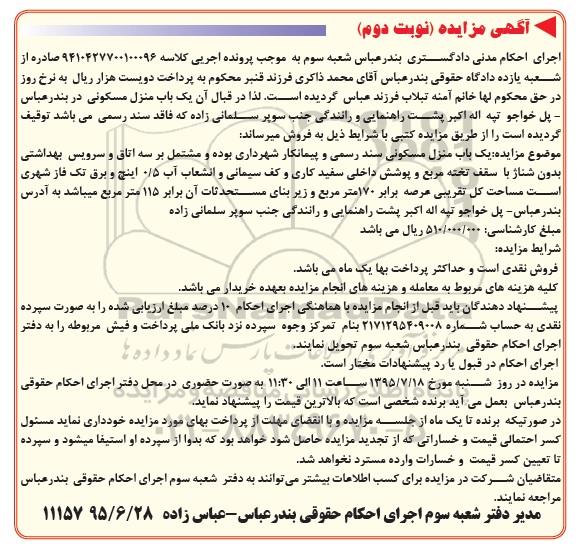 آگهی مزایده (نوبت دوم)
اجرای احکام مدنی دادگستری بندرعباس شعبه سوم به موجب پرونده اجریی کلاسه ۹۴۱۰۴۲۷۷۰۰۱۰۰۰۹۶ صادره از
شعبه یازده دادگاه حقوقی بندرعباس آقای محمد ذاکری فرزند قنبر محکوم به پرداخت دویست هزار ریال به نرخ روز
در حق محکوم لها خانم آمنه تبلاب فرزند عباس گردیده است. لذا در قبال آن یک باب منزل مسکونی در بندرعباس
- پل خواجو تپه اله اکبر پشت راهنمایی و رانندگی جنب سوپر سلمانی زاده که فاقد سند رسمی می باشد توقیف
گردیده است را از طریق مزایده کتبی با شرایط ذیل به فروش میرساند:
موضوع مزایده:یک باب منزل مسکونی سند رسمی و پیمانکار شهرداری بوده و مشتمل بر سه اتاق و سرویس بهداشتی
بدون شناژ با سقف تخته مربع و پوشش داخلی سفید کاری و کف سیمانی و انشعاب آب ۰/۵ اینچ و برق تک فاز شهری
است مساحت کل تقریبی عرصه برابر ۱۷۰متر مربع و زیر بنای مستحدثات آن برابر ۱۱۵ متر مربع میباشد به آدرس
بندرعباس- پل خواجو تپه اله اکبر پشت راهنمایی و رانندگی جنب سوپر سلمانی زاده
مبلغ کارشناسی: ۵۱۰/۰۰۰/۰۰۰ ریال می باشد
شرایط مزایده:
فروش نقدی است و حداکثر پرداخت بها یک ماه می باشد.
کلیه هزینه های مربوط به معامله و هزینه های انجام مزایده بعهده خریدار می باشد.
پیشنهاد دهندگان باید قبل از انجام مزایده با هماهنگی اجرای احکام ۱۰ درصد مبلغ ارزیابی شده را به صورت سپرده
نقدی به حساب شماره ۲۱۷۱۲۹۵۴۰۹۰۰۸ بنام تمرکز وجوه سپرده نزد بانک ملی پرداخت و فیش مربوطه را به دفتر
اجرای احکام حقوقی بندرعباس شعبه سوم تحویل نمایند.
اجرای احکام در قبول یا رد پیشنهادات مختار است.
مزایده در روز شنبه مورخ ۱۳۹۵/۷/۱۸ ساعت ۱۱ الی ۱۱:۳۰ به صورت حضوری در محل دفتر اجرای احکام حقوقی
بندرعباس بعمل می آید برنده شخصی است که بالاترین قیمت را پیشنهاد نماید.
در صورتیکه برنده تا یک ماه از جلسه مزایده و با انقضای مهلت از پرداخت بهای مورد مزایده خودداری نماید مسئول
کسر احتمالی قیمت و خساراتی که از تجدید مزایده حاصل شود خواهد بود که بدوا از سپرده او استیفا میشود و سپرده
تا تعیین کسر قیمت و خسارات وارده مسترد نخواهد شد.
متقاضیان شرکت در مزایده برای کسب اطلاعات بیشتر می‌توانند به دفتر شعبه سوم اجرای احکام حقوقی بندرعباس
مراجعه نمایند.
مدیر دفتر شعبه سوم اجرای احکام حقوقی بندرعباس-عباس زاده ۹۵/۶/۲۸ ۱۱۱۵۷